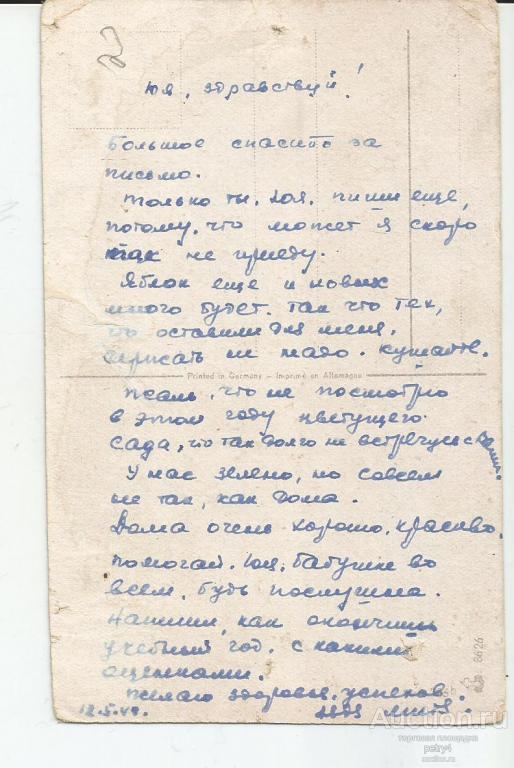 Юля, здравствуй!
Большое спасибо за
письмо.
Только ты, Юля, пиши еще,
потому, что может я скоро
так не приеду.
Яблок еще и новых
много будет. Так что тех,
что оставили для меня,
беригать не надо. Кушайте.
Printed in Germany – Imprimé en Allemagne
Жаль, что не посмотрю
в этом году цветущего
сада, что так долго не встречусь с Вами.
У нас зелено, но совсем
не так, как дома.
Дома очень хорошо, красиво.
Помогай, Юля, бабушке во
всем, будь послушна.
Напиши, как окончишь
учебный год, с какими
оценками.
Желаю здоровья, успехов.
12.5.49. дядя Митя.
8626
Auction.ru
торговая площадка
petry4
auction.ru